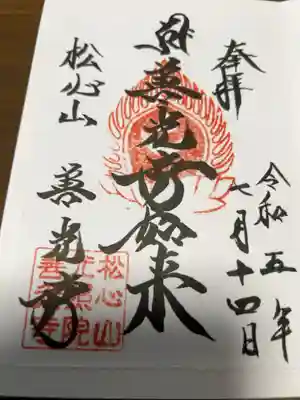 奉拝
令和五年
七月十四日
善光寺如来
松心山
善光寺
松心山
光照院
善光寺